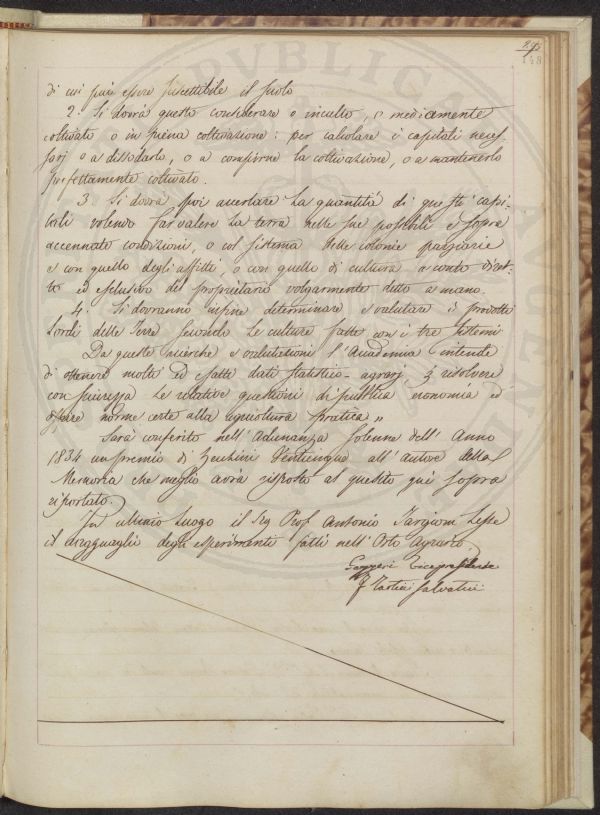 295
148
di cui può essere suscettibile il suolo
2. Si dovrà questo considerare o inculto, o mediocremente
coltivato o in piena coltivazione: per calcolare i capitali necess
sarj o a dissodarlo, o a compirne la coltivazione, o a mantenerlo
perfettamente coltivato.
3. Si dovrà poi accertare la quantità di questi capi-
tali volendo far valere la terra nelle sue possibili e sopra
accennate condizioni, o col sistema delle colonie parziarie
e con quello degli affitti, o con quello di cultura a conto diret-
to ed esclusivo del proprietario volgarmente detto a mano.
4. Si dovranno infine determinare e valutare i prodotti
lordi delle Terre secondo le culture fatte con i tre sistemi
Da queste ricerche e valutazioni l'Accademia intende
di ottenere molti ed esatti dati statistico-agrarj risolvere
con sicurezza le relative questioni di pubblica economia ed
norme certe alla agricoltura pratica„
Sarà conferito nell'Adunanza solenne dell'Anno
1834 un premio di Zecchini Venticinque all'autore della
Memoria che meglio avrà risposto al quesito quì sopra
riportato.
In ultimo luogo il Sig Prof Antonio Targioni lesse
il ragguaglio degli esperimenti fatti nell'Orto Agrario
Gazzeri Vicepresidente
F Tartini Salvatici